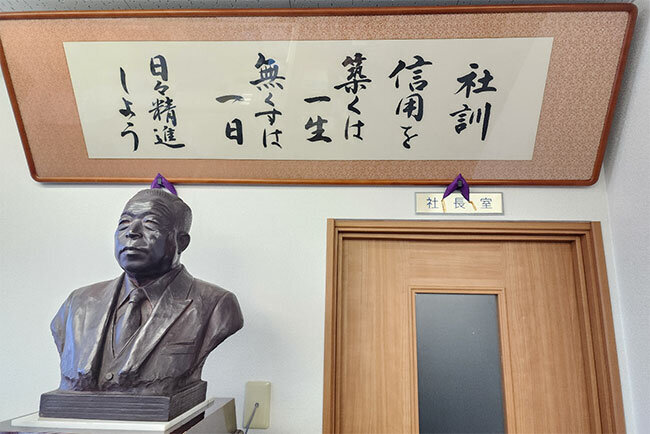 社訓
信用を
築くは
一生
無くすは
一日
日々精進
しよう
社長室